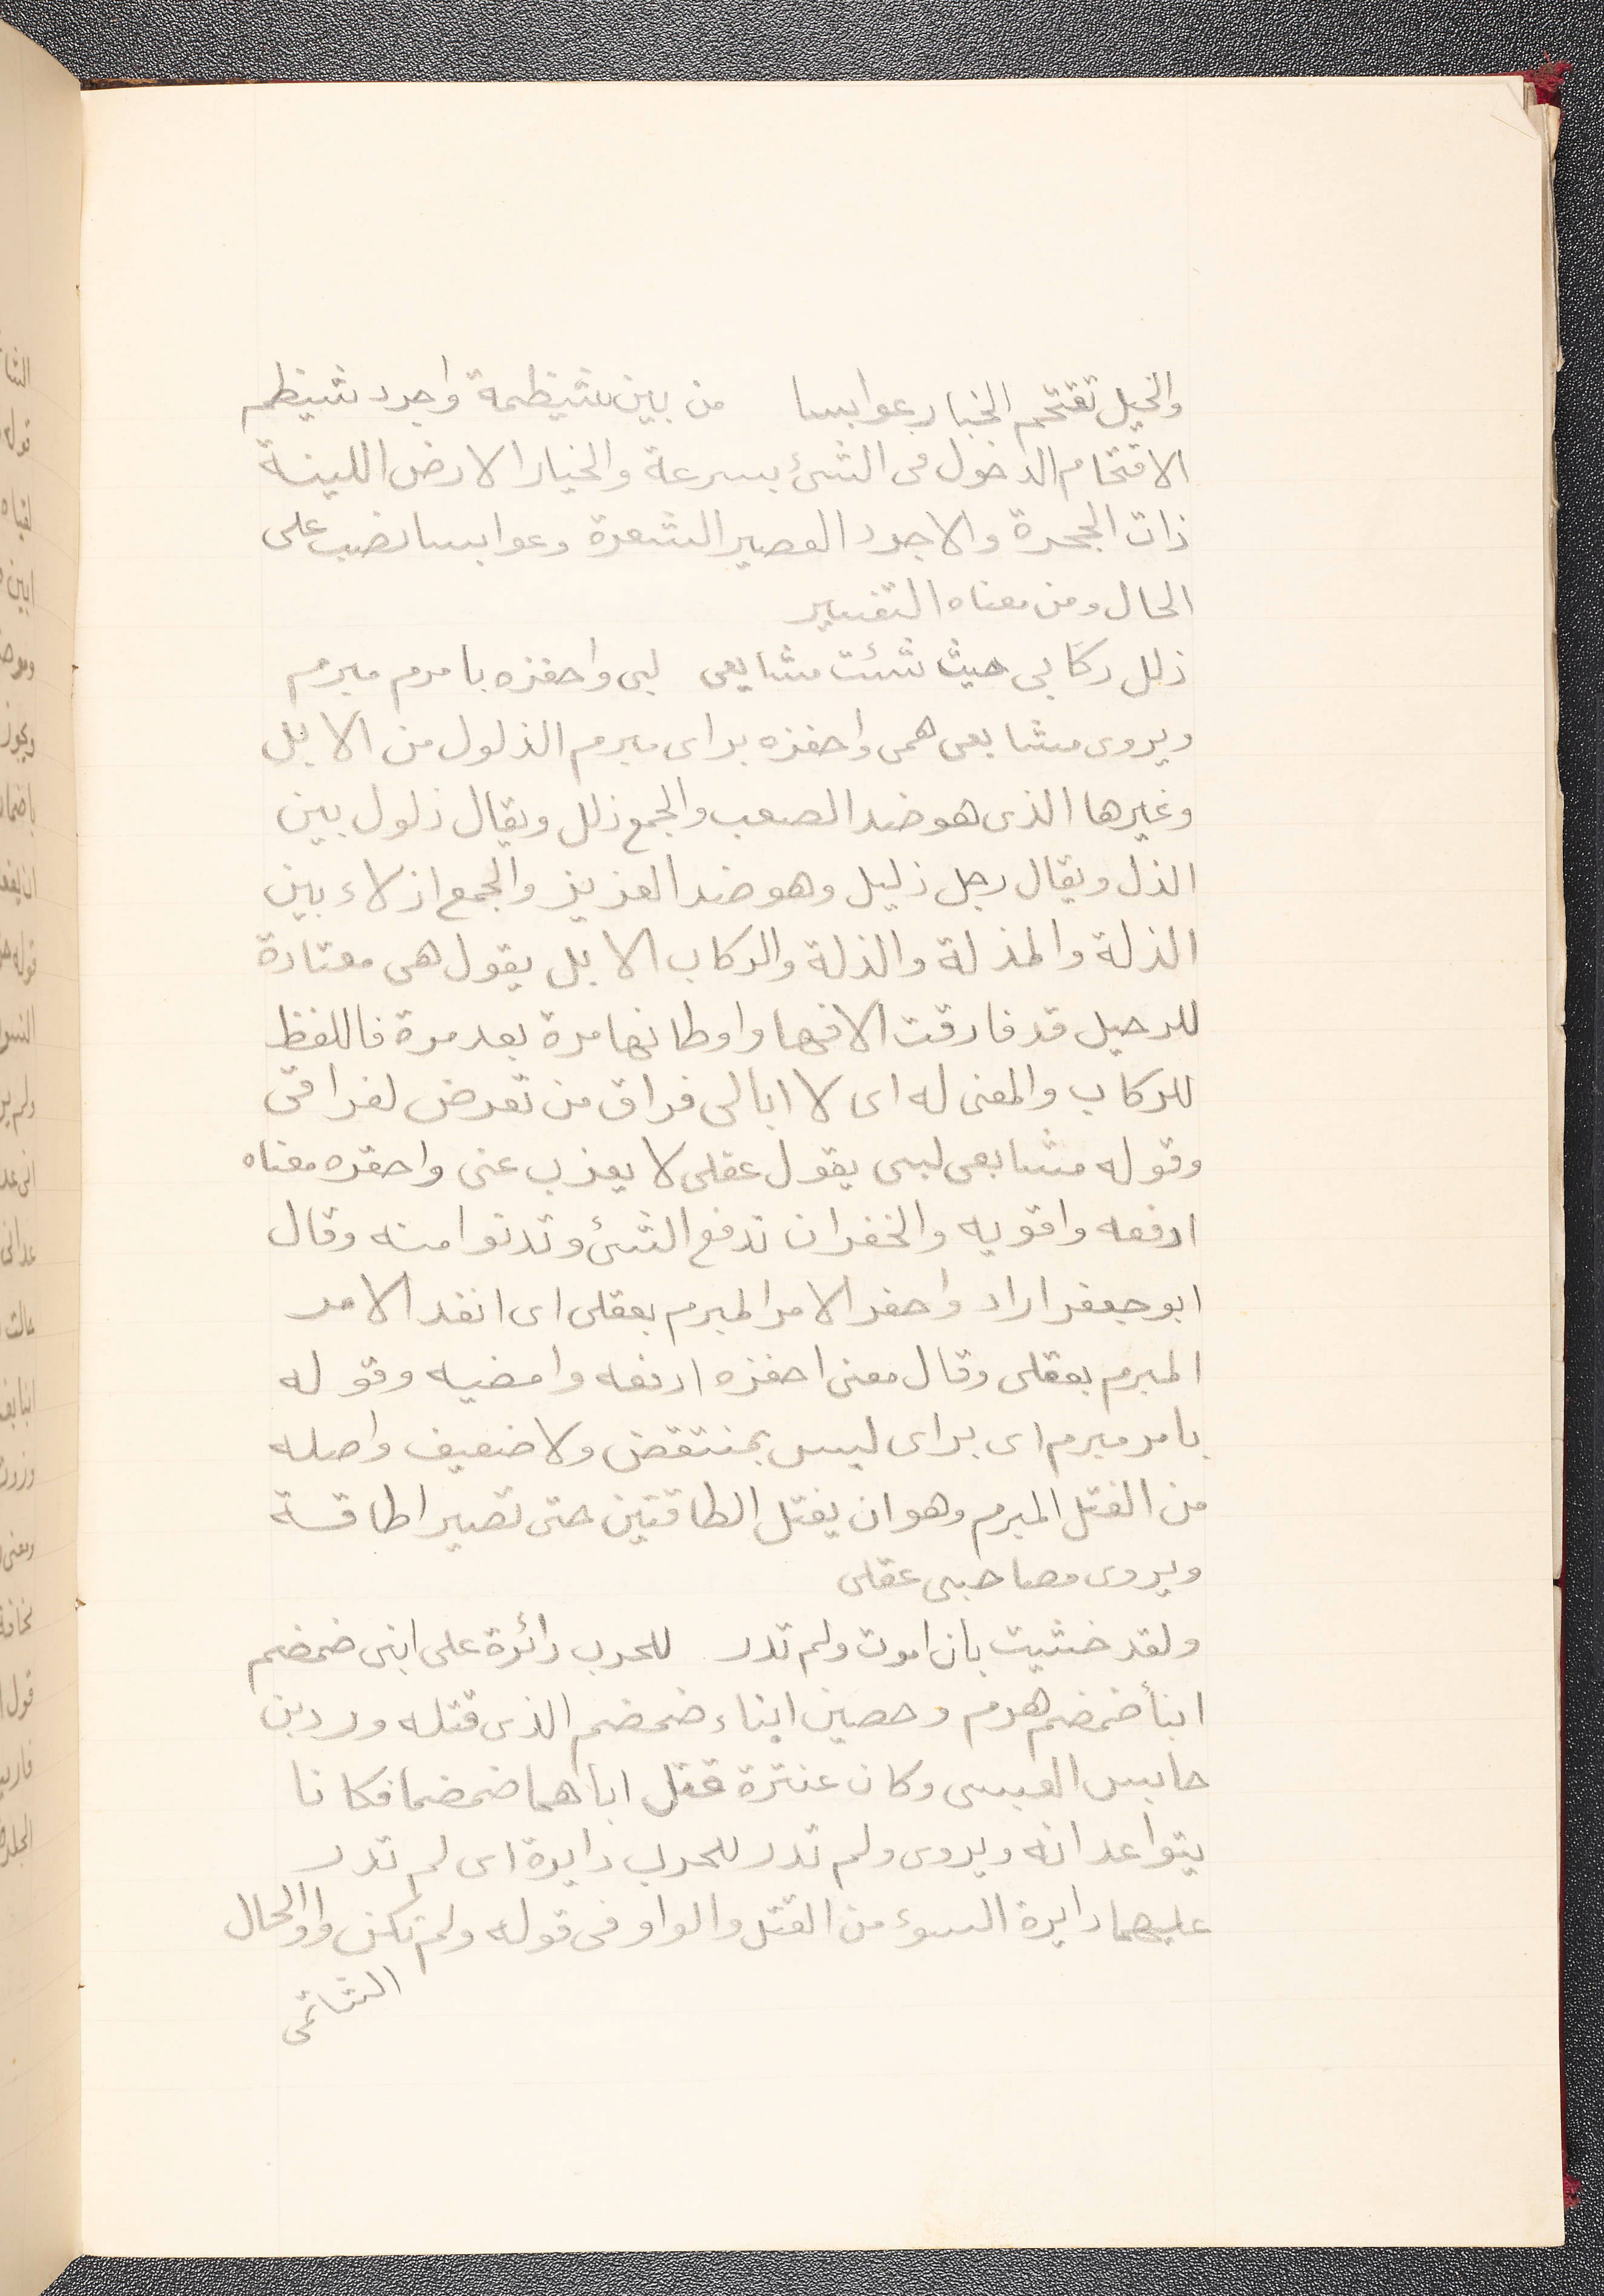 والخيل تقتحم الخبار عوابسا من بين شيظمة واجرد شيظم
الاقتحام الدخول فى الشئ بسرعة والخبار الارض اللينة
ذات الجحرة والاجرد القصير الشعرة وعوابسا نصب على
الحال ومن معناه التفسير
ذلل ركابى حيث شئت مشايعى لبى واحفزه بامرم مبرم
ويروى مشايعى همى واحفزه براى مبرم الذلول من الابل
وغيرها الذى هو ضد الصعب والجمع ذلل ويقال ذلول بين
الذل ويقال رجل ذليل وهو ضد العزيز والجمع اذلاء بين
الذلة والمذلة والذلة والركاب الابل يقول هى معتادة
للرحيل قد فارقت الافها واوطانها مرة بعد مرة فاللفظ
للركاب والمعنى له اى لا ابالى فراق من تعرض لفراقى
وقوله مشايعى لبى يقول عقلى لا يعزب عنى واحفزه معناه
ادفعه واقويه والخفران تدفع الشئ وتدنوا منه وقال
ابو جعفر اراد واحفر الامر المبرم بعقلى اى انفد الامر
المبرم بعقلى وقال معنى احفزه ادفعه وامضيه وقوله
بامر مبرم اى براى ليس بمنتقض ولا ضعيف واصله
من الفتل المبرم وهو ان يفتل الطاقتين حتى تصيرا طاقة
ويروى مصاحبى عقلى
ولقد خشيت بان اموت ولم تدر للحرب دائرة على ابنى ضمضم
ابنأ ضمضم هرم وحصين ابناء ضمضم الذى قتله ورد بن
حابس العبسى وكان عنترة قتل اباهما ضمضما فكانا
يتواعدانه ويروى ولم تدر للحرب دايرة اى لم تدر
عليهما دايرة السوء من القتل والواو فى قوله ولم تكن واو الحال
الشاتمى